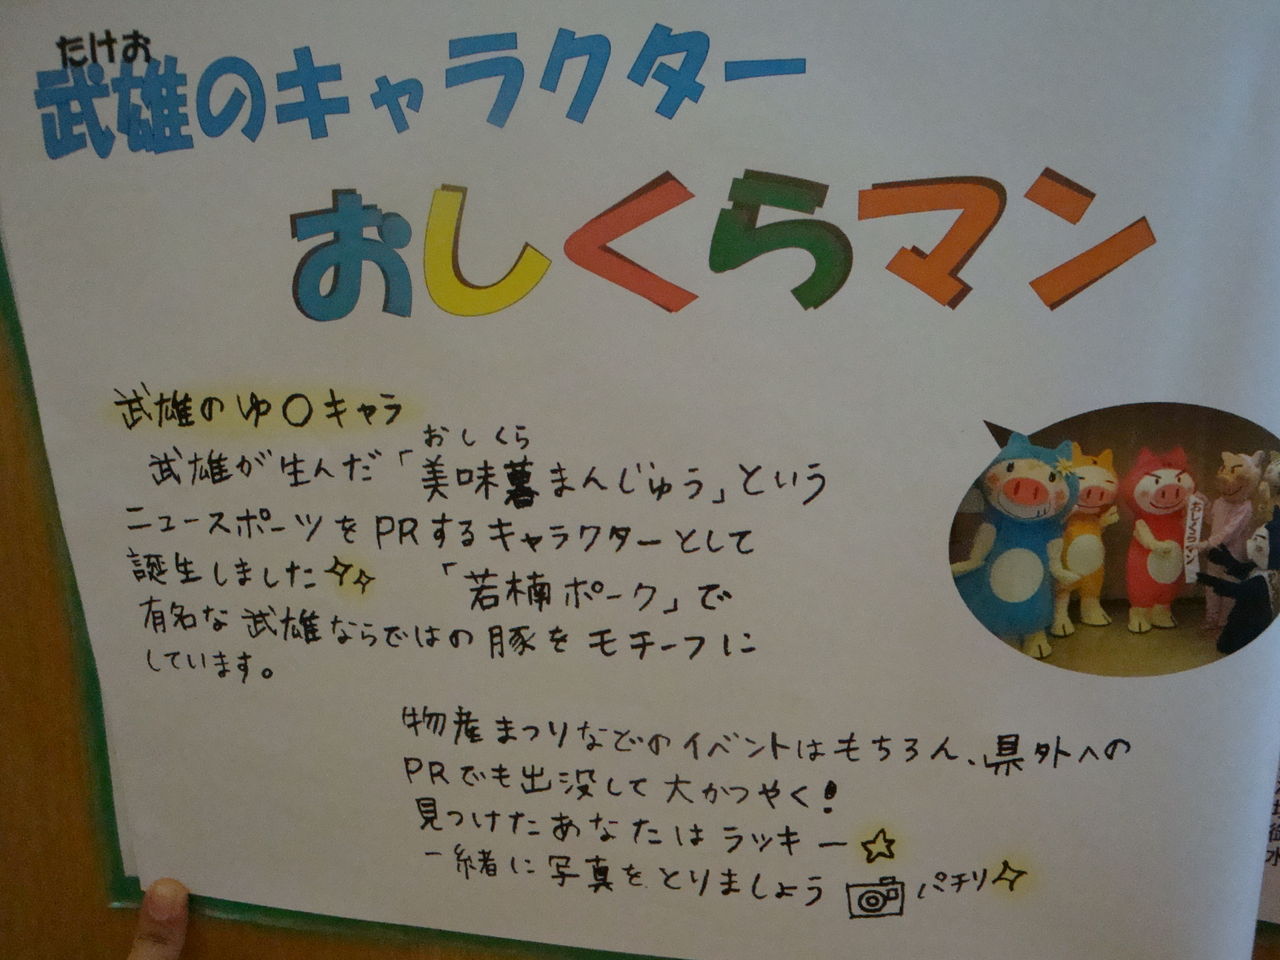 たけお
武雄のキャラクター
おしくらマン
武雄のゆ○キャラ
おしくら
武雄が生んだ「美味暮まんじゅう」という
ニュースポーツをPRするキャラクターとして
誕生しました 「若楠ポーク」で
有名な武雄ならではの豚をモチーフに
しています。
おしくらマン
物産まつりなどのイベントはもちろん、県外への
PRでも出没して大かつやく!
見つけたあなたはラッキー☆
一緒に写真をとりましょう パチリ